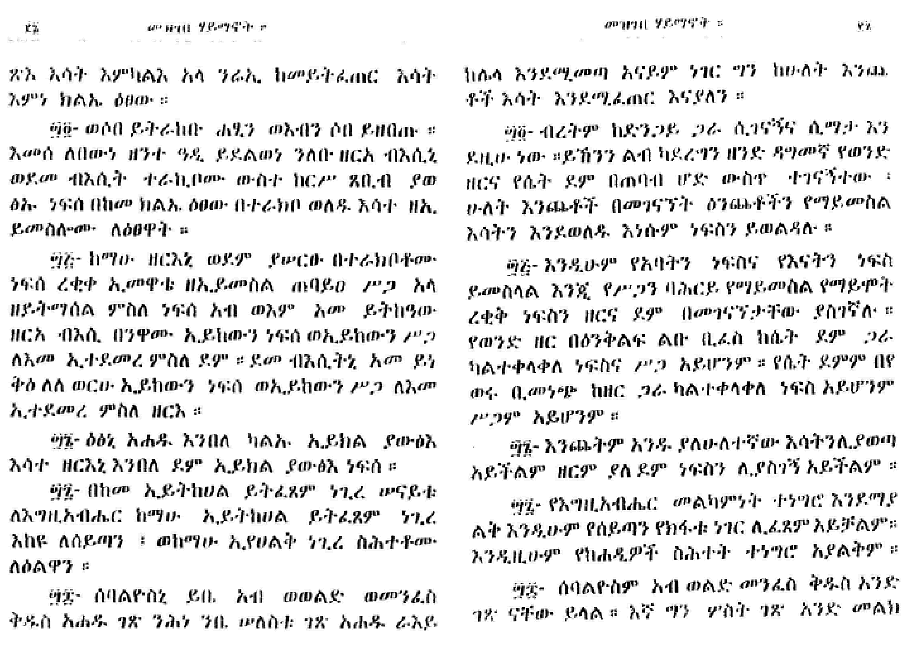 መዝገበ ሃይማኖት ።
ጽእ እሳት እምካልእ አላ ንሬኢ ከመይትፈጠር እሳት
እምነ ክልኤ ዕፀው ።
ወሶበ ይትራከቡ ሐፂን ወእብን ሶበ ይዘበጡ ።
እመሰ ለበውነ ዘንተ ዓዲ ይደልወነ ንለቡ ዘርአ ብእሲኒ
ወደመ ብእሲት ተራኪቦሙ ውስተ ከርሥ ጸቢብ ያወ
ፅኡ ነፍሰ በከመ ክልኤ ዕፀው በተራክቦ ወለዱ እሳተ ዘኢ
ይመስሎሙ ለዕፀዋት ።
ከማሁ ዘርእኒ ወደም ያሠርፁ በተራክቦቶሙ
ነፍሰ ረቂቀ ኢመዋቲ ዘኢይመስል ጠባይዐ ሥጋ አላ
ዘይትማሰል ምስለ ነፍሰ አብ ወእም እመ ይትከዓው
ዘርአ ብእሲ በንዋሙ ኢይከውን ነፍሰ ወኢይከውን ሥጋ
ለእመ ኢተደመረ ምስለ ደም ። ደመ ብእሲትኒ እመ ይነ
ቅዕ ለለ ወርኁ ኢይከውን ነፍሰ ወኢይከውን ሥጋ ለእመ
ኢተደመረ ምስለ ዘርእ ።
ዕፅኒ አሐዱ እንበለ ካልኡ ኢይክል ያውፅእ
እሳተ ዘርእኒ እንበለ ደም ኢይክል ያውፅእ ነፍሰ ።
በከመ ኢይትከሀል ይትፈጸም ነገረ ሠናይቱ
ለእግዚአብሔር ከማሁ ኢይትከሀል ይትፈጸም ነገረ
እከዩ ለሰይጣን ፤ ወከማሁ ኢየሀልቅ ነገረ ስሕተቶሙ
ለዕልዋን ።
ሰባልዮስኒ ይቤ አብ ወወልድ ወመንፈስ
ቅዱስ አሐዱ ገጽ ንሕነ ንቤ ሠለስቱ ገጽ አሐዱ ራእይ
መዝገበ ሃይማኖት ።
ከሌላ እንደሚመጣ አናይም ነገር ግን ከሁለት እንጨ
ቶች እሳት እንደሚፈጠር እናያለን ።
ብረትም ከድንጋይ ጋራ ሲገናኝና ሲማታ እን
ደዚሁ ነው ። ይኸንን ልብ ካደረግን ዘንድ ዳግመኛ የወንድ
ዘርና የሴት ደም በጠባብ ሆድ ውስጥ ተገናኝተው ፤
ሁለት እንጨቶች በመገናኘት ዕንጨቶችን የማይመስል
እሳትን እንደወለዱ እነሱም ነፍስን ይወልዳሉ ።
እንዲሁም የአባትን ነፍስና የእናትን ነፍስ
ይመስላል እንጂ የሥጋን ባሕርይ የማይመስል የማይሞት
ረቂቅ ነፍስን ዘርና ደም በመገናኘታቸው ያስገኛሉ ።
የወንድ ዘር በዕንቅልፍ ልቡ ቢፈስ ከሴት ደም ጋራ
ካልተቀላቀለ ነፍስና ሥጋ አይሆንም ። የሴት ደምም በየ
ወሩ ቢመነጭ ከዘር ጋራ ካልተቀላቀለ ነፍስ አይሆንም
ሥጋም አይሆንም ።
እንጨትም አንዱ ያለሁለተኛው እሳትን ሊያወጣ
አይችልም ዘርም ያለ ደም ነፍስን ሊያስገኝ አይችልም ።
የእግዚአብሔር መልካምነት ተነግሮ እንደማያ
ልቅ እንዲሁም የሰይጣን የክፋቱ ነገር ሊፈጸም አይቻልም።
እንዲዚሁም የከሐዲዎች ስሕተት ተነግሮ አያልቅም ።
ሰባልዮስም አብ ወልድ መንፈስ ቅዱስ አንድ
ገጽ ናቸው ይላል ። እኛ ግን ሦስት ገጽ አንድ መልክ